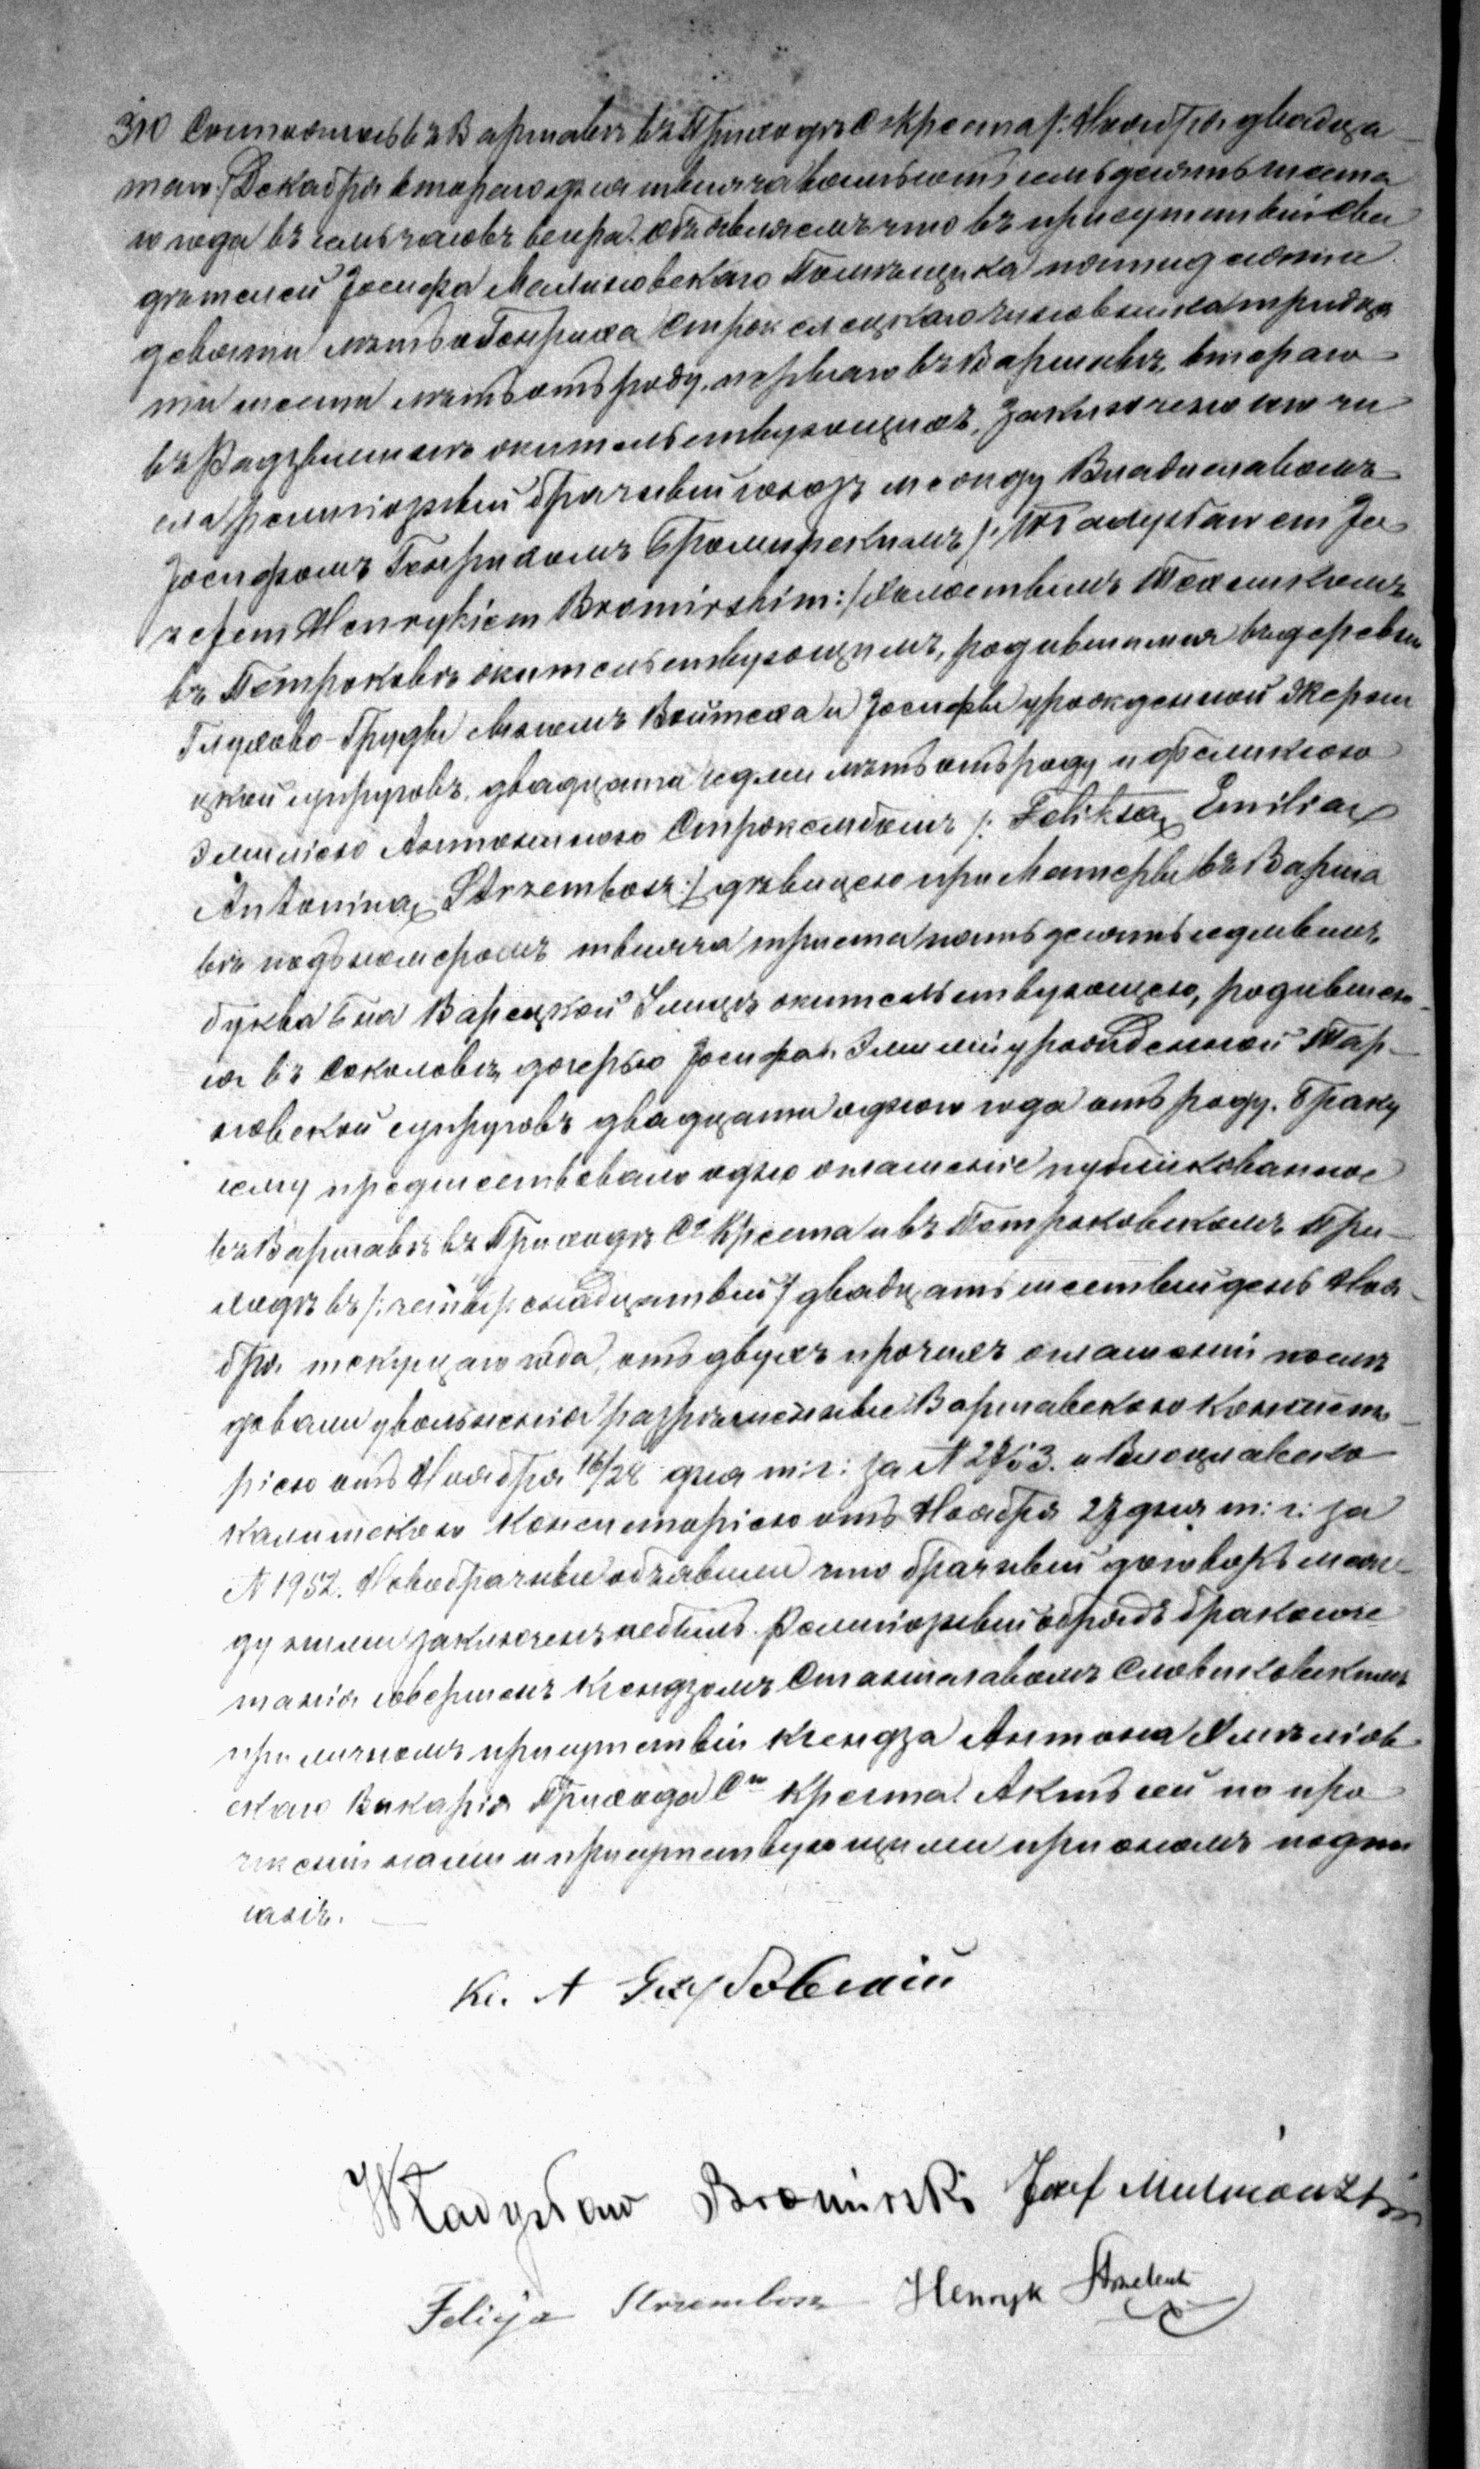 310 Состоялось въ Варшавѣ въ Приходѣ С Креста /: Ноября двадца-
таго :/ Декабря втораго дня тысяча восемьсотъ семьдесятъ шеста
го года въ семь часовъ вечера. Объявляемъ что въ присутствіи Сви
дѣтелей Іосифа Малиновскаго Помѣщика пятидесяти
девяти лѣтъ и Генриха Стрѣлецкаго чиновника тридца
ти шести лѣтъ отъ роду, перваго въ Варшавѣ, втораго
въ жительствующихъ, заключено сего чи
сла религіозный брачный союзъ между Владиславомъ
Іосифомъ Генрихомъ Бромирскимъ /: Władysławem Jó
zefem Henrykiem Bromirskim :/ холостымъ Техникомъ
въ Петроковѣ жительствующимъ, родившимся въ деревнѣ
Глухово-Груды сыномъ Войтеха и Іосифы урожденной
цкой супруговъ, двадцати седми лѣтъ отъ роду и Феликсою
Эмиліею Антониною Стржембошъ /: Feliksą Emilią
Antoniną Strzembosz :/ дѣвицею при Матери въ Варша
вѣ подъ номеромъ тысяча триста пятьдесятъ седмымъ
буква Б на Варецкой Улицѣ жительствующею, родившею
ся въ Соколовѣ, дочерью Іосифа и Эмиліи урожденной Тар-
новской супруговъ двадцати одного года отъ роду. Браку
сему предшествовало одно оглашеніе публикованное
въ Варшавѣ въ Приходѣ Сº Креста и въ Петроковскомъ При-
ходѣ въ /: четырнадцатый :/ двадцать шестый день Ноя-
бря текущаго года, отъ двухъ прочихъ оглашеній послѣ
довали увольненія разрѣшенныя Варшавскою Консисто-
ріею отъ Ноября 16/28 дня т: г: за N 2763. и Влоцлавско
Калишскою Консисторіею отъ Ноября 27 дня т: г: за
N 1952. Новобрачные объявили что брачный договоръ меж-
ду ними заключенъ небылъ. Религіозный обрядъ бракосоче
танія совершенъ Ксендзомъ Станиславомъ Словиковскимъ
при личномъ присутствіи Ксендза Антона
скаго Викарія Прихода Сго Креста. Актъ сей по про
чтеніи нами и присутствующими при ономъ подпи
санъ.
Кс. А
Władysław Bromirski Józef Malinowski
Felicja Strzembosz Henryk